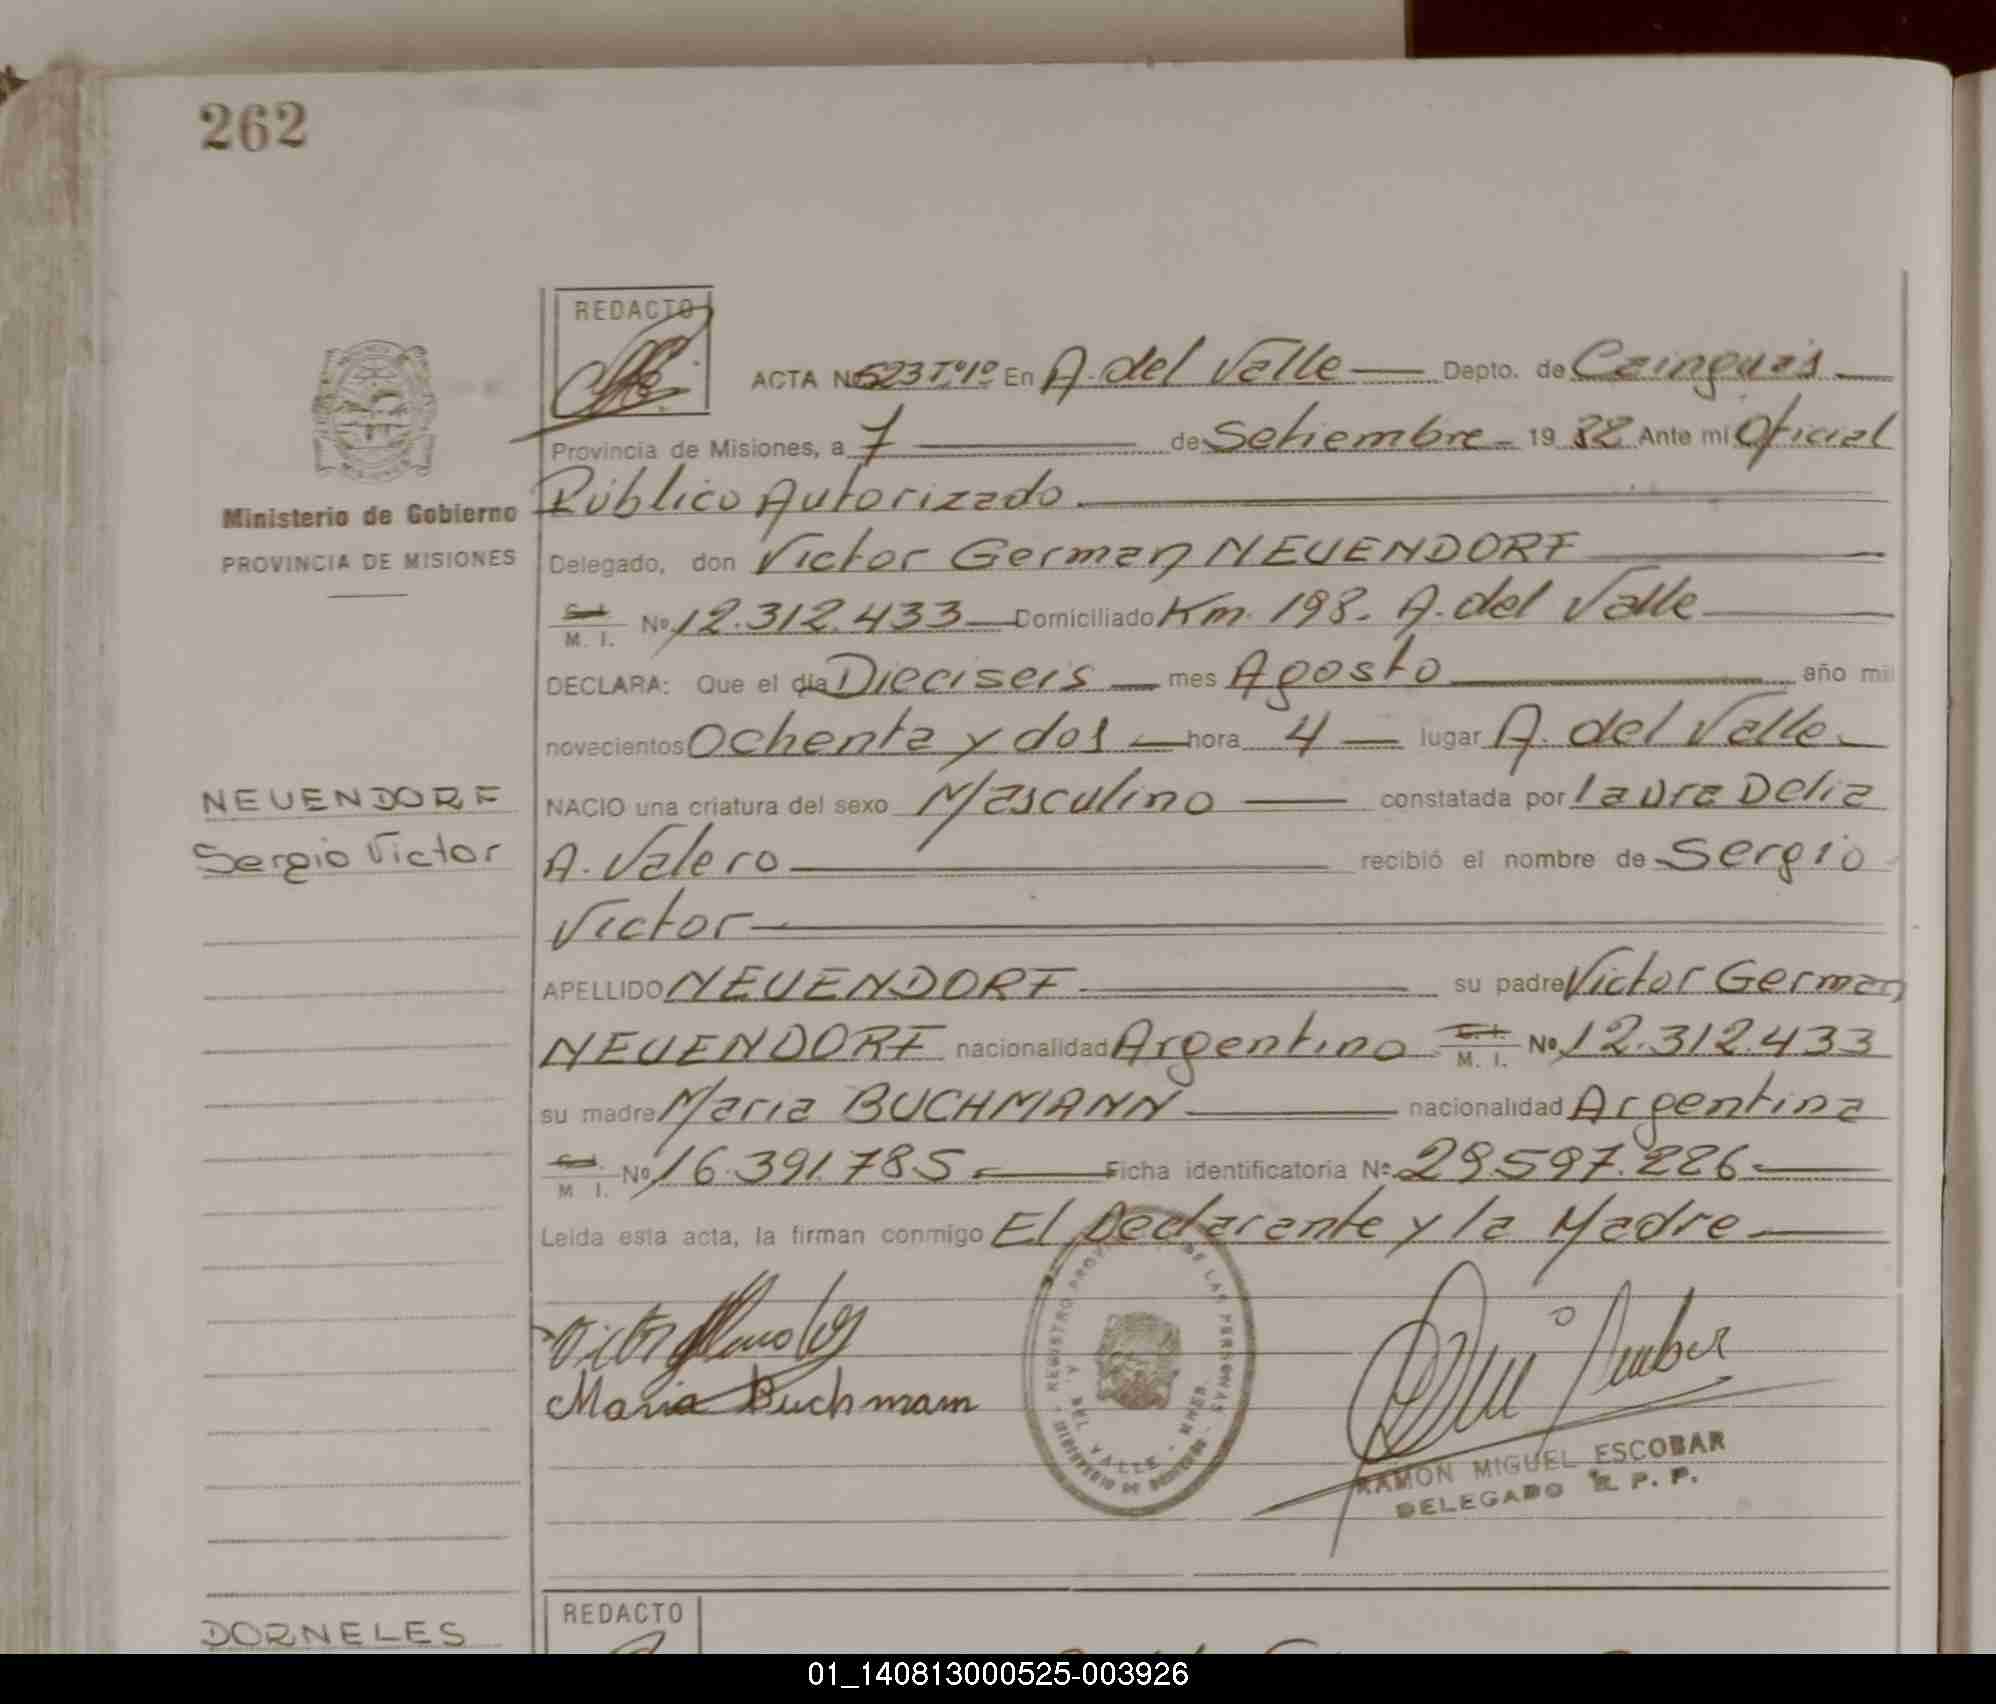 262
REDACTO
ACTA Nº 523 Tº 1º En A. del Valle Depto. de Cainguás
Provincia de Misiones, a 7 de Setiembre 1982 Ante mi Oficial
Ministerio de Gobierno
PROVINCIA DE MISIONES
Público Autorizado
Delegado, don Victor German NEUENDORF
M. I. Nº 12.312.433 Domiciliado Km. 198. A. del Valle
DECLARA: Que el día Dieciseis mes Agosto año mil
novecientos Ochenta y dos hora 4 lugar A. del Valle
NEUENDORF
Sergio Victor
NACIO una criatura del sexo Masculino constatada por Laura Delia
A. Valero recibió el nombre de Sergio
Victor
APELLIDO NEUENDORF su padre Victor German
NEUENDORF nacionalidad Argentino M. I. Nº 12.312.433
su madre Maria BUCHMANN nacionalidad Argentina
M. I. Nº 16.391.785 Ficha identificatoria Nº 29.597.226
Leida esta acta, la firman conmigo El Declarante y la Madre
Maria Buchmann
REGISTRO DE LAS PERSONAS
DEL VALLE - MNES.
RAMON MIGUEL ESCOBAR
DELEGADO R. P. P.
DORNELES
REDACTO
01_140813000525-003926